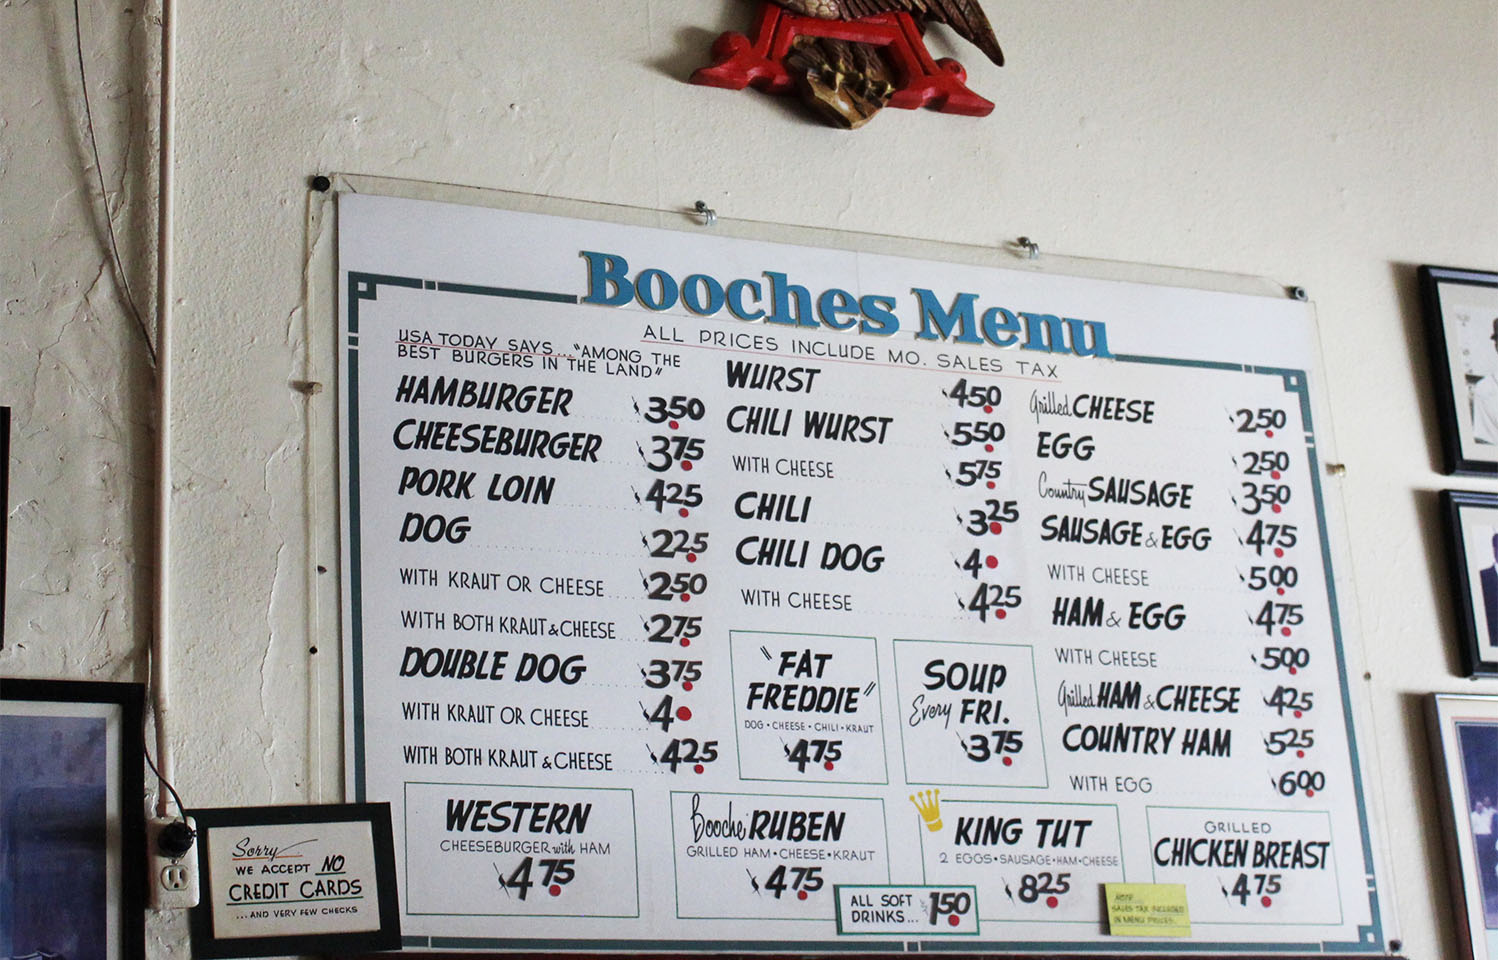 Booches Menu
ALL PRICES INCLUDE MO. SALES TAX
USA TODAY SAYS... "AMONG THE
BEST BURGERS IN THE LAND"
HAMBURGER $3.50
CHEESEBURGER $3.75
PORK LOIN $4.25
DOG $2.25
WITH KRAUT OR CHEESE $2.50
WITH BOTH KRAUT & CHEESE $2.75
DOUBLE DOG $3.75
WITH KRAUT OR CHEESE $4.
WITH BOTH KRAUT & CHEESE $4.25
WURST $4.50
CHILI WURST $5.50
WITH CHEESE $5.75
CHILI $3.25
CHILI DOG $4.
WITH CHEESE $4.25
"FAT
FREDDIE"
DOG • CHEESE • CHILI • KRAUT
$4.75
SOUP
Every FRI.
$3.75
Grilled CHEESE $2.50
EGG $2.50
Country SAUSAGE $3.50
SAUSAGE & EGG $4.75
WITH CHEESE $5.00
HAM & EGG $4.75
WITH CHEESE $5.00
Grilled HAM & CHEESE $4.25
COUNTRY HAM $5.25
WITH EGG $6.00
WESTERN
CHEESEBURGER with HAM
$4.75
Booche RUBEN
GRILLED HAM • CHEESE • KRAUT
$4.75
KING TUT
2 EGGS • SAUSAGE • HAM • CHEESE
$8.25
GRILLED
CHICKEN BREAST
$4.75
ALL SOFT
DRINKS... 1.50
NOTE...
SALES TAX INCLUDED
IN MENU PRICES.
Sorry
WE ACCEPT NO
CREDIT CARDS
...AND VERY FEW CHECKS